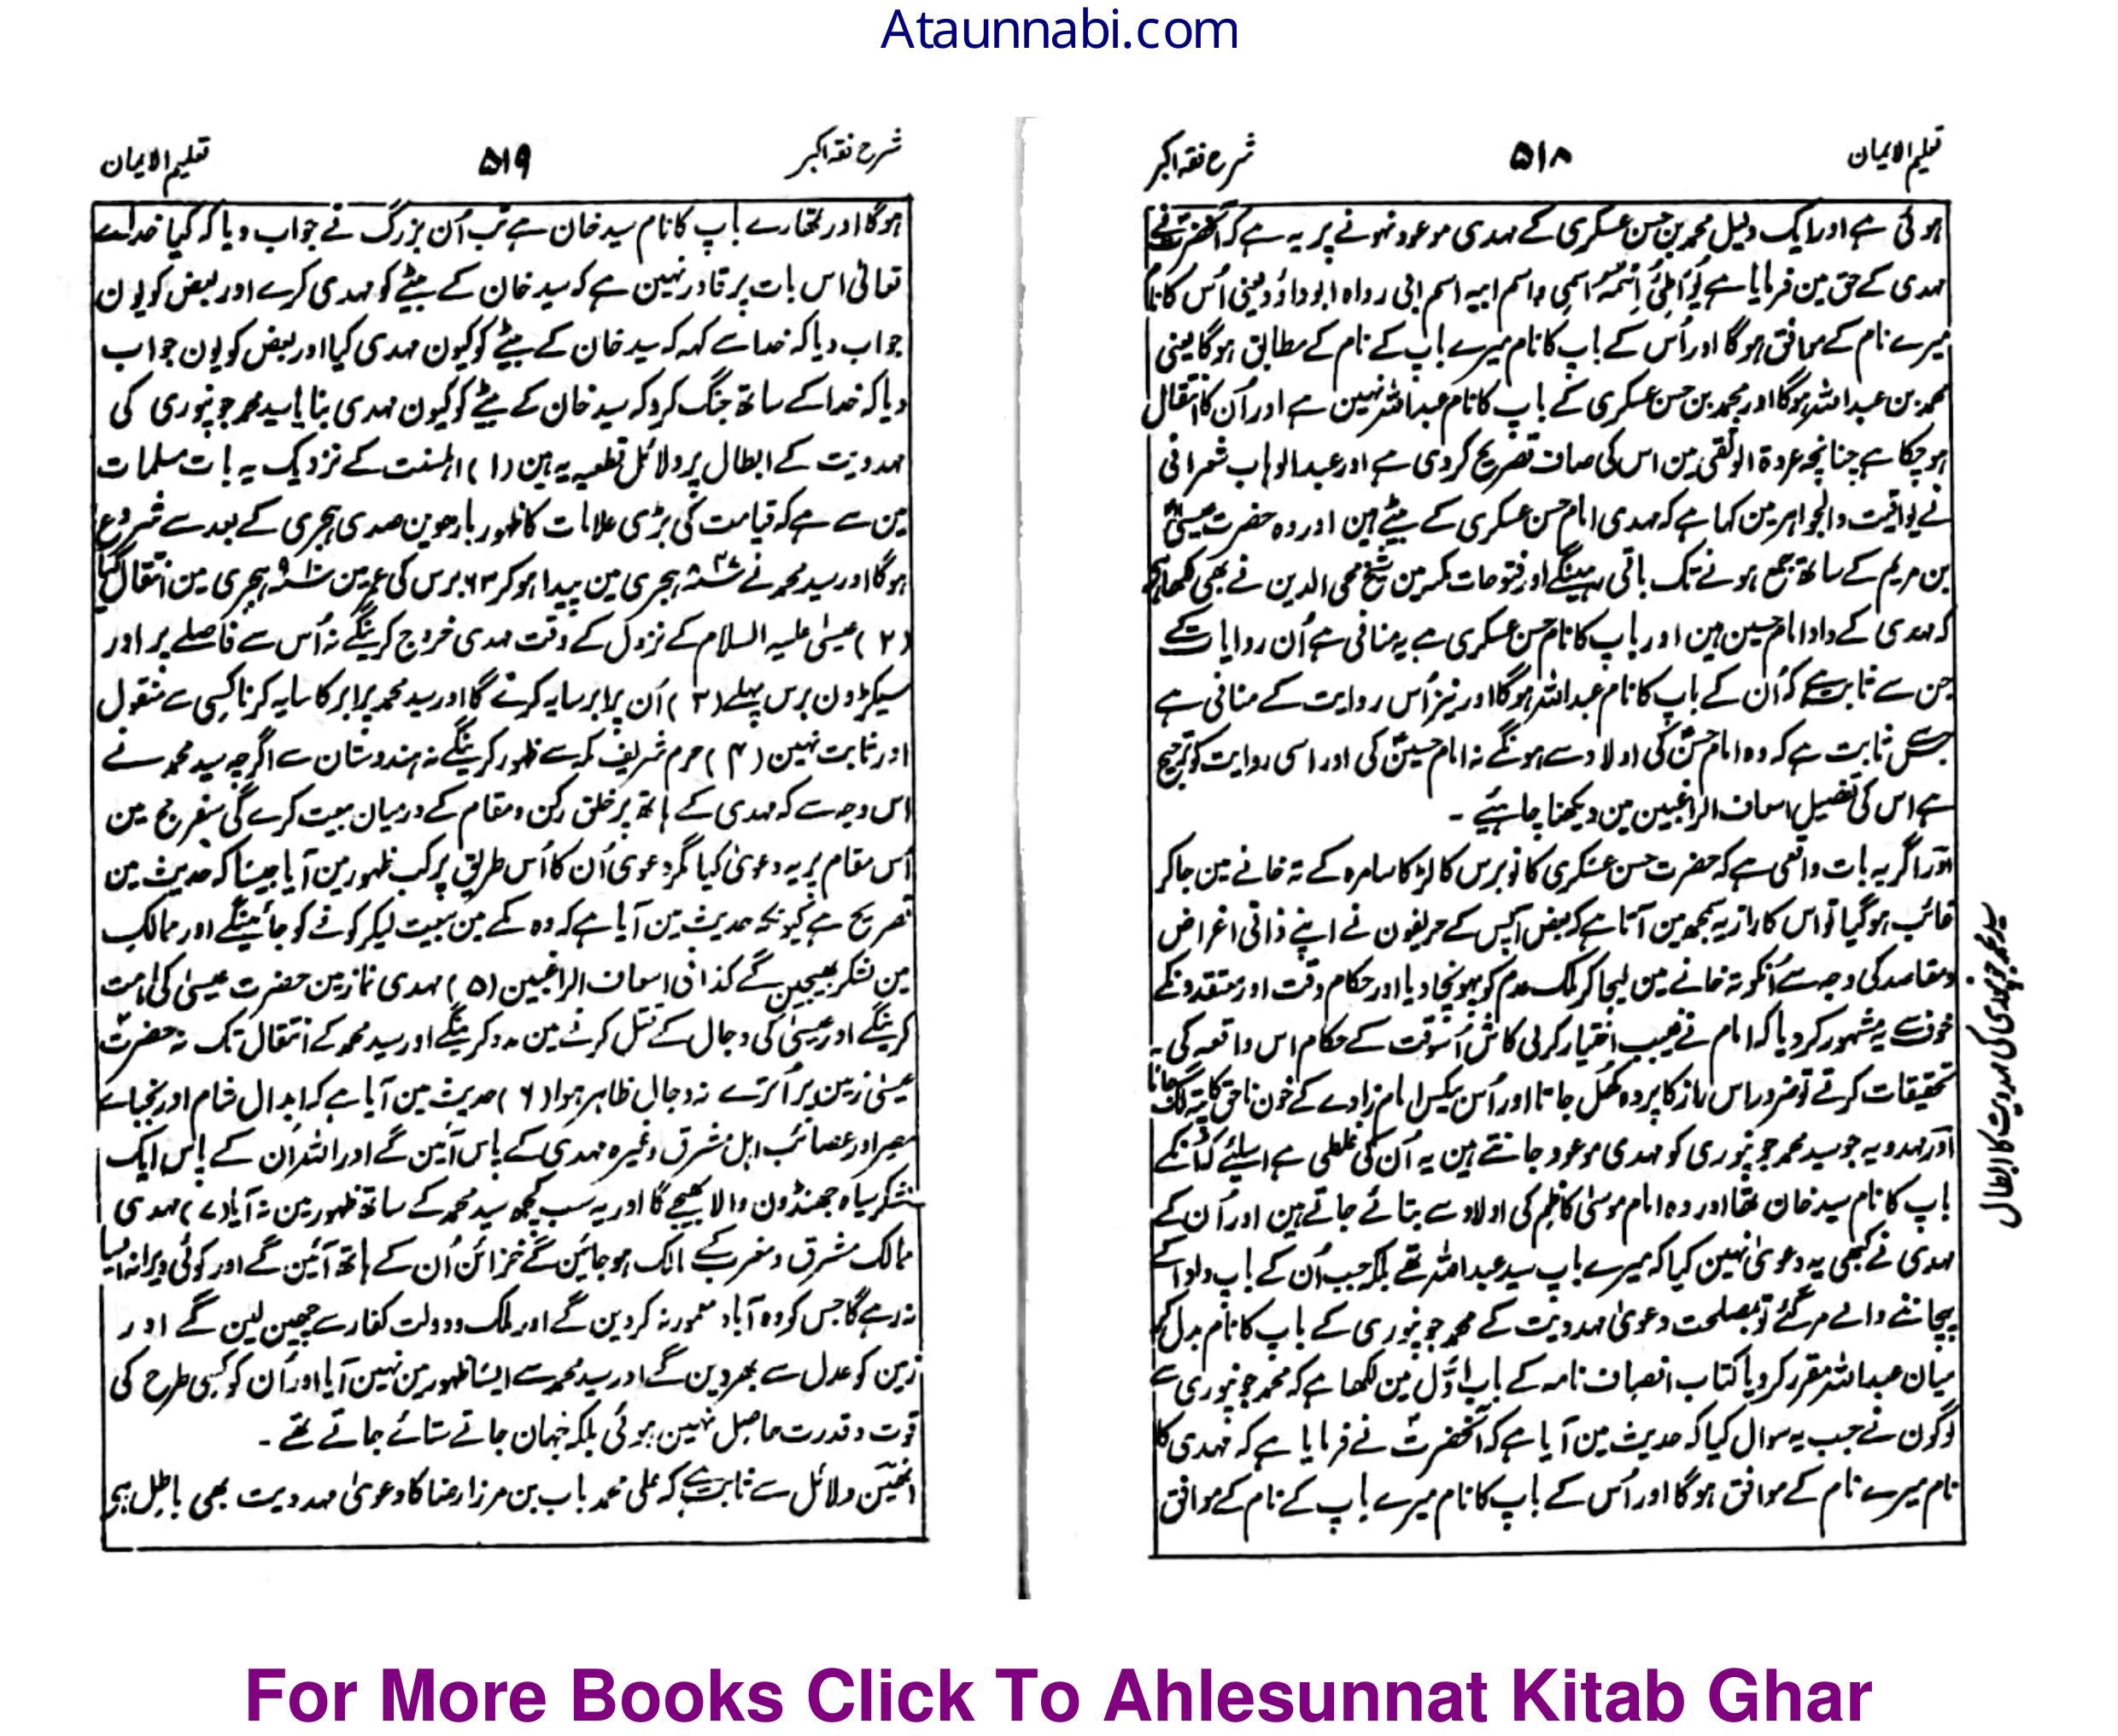 Ataunnabi.com
تعلیم الایمان
۵۱۸
شرح فقہ اکبر
ہوئی ہے اور ایک دلیل محمد بن حسن عسکری کے مہدی موعود نہونے پر یہ ہے کہ آنحضرت نے
مہدی کے حق مین فرمایا ہے یُوَاطِئُ اِسْمُہٗ اسمی واسم ابیہ اسم ابی رواہ ابوداؤد یعنی اُس کا نام
میرے نام کے موافق ہوگا اور اُس کے باپ کا نام میرے باپ کے نام کے مطابق ہوگا یعنی
محمد بن عبداللہ ہوگا اور محمد بن حسن عسکری کے باپ کا نام عبداللہ نہین ہے اور اُن کا انتقال
ہوچکا ہے چنانچہ عروۃ الوثقی مین اس کی صاف تصریح کردی ہے اور عبدالوہاب شعرانی
نے یواقیت والجواہر مین کہا ہے کہ مہدی امام حسن عسکری کے بیٹے ہین اور وہ حضرت عیسیٰ
بن مریم کے ساتھ جمع ہونے تک باقی رہینگے اور فتوحات مکہ مین شیخ محی الدین نے بھی لکھا ہے
کہ مہدی کے دادا امام حسین ہین اور باپ کا نام حسن عسکری ہے یہ منافی ہے اُن روایات کے
جن سے ثابت ہے کہ اُن کے باپ کا نام عبداللہ ہوگا اور نیز اُس روایت کے منافی ہے
جس سے ثابت ہے کہ وہ امام حسنؓ کی اولاد سے ہونگے نہ امام حسینؓ کی اور اسی روایت کو ترجیح
ہے اس کی تفصیل اسعاف الراغبین مین دیکھنا چاہیئے ۔
اور اگر یہ بات واقعی ہے کہ حضرت حسن عسکری کا نو برس کا لڑکا سامرہ کے تہ خانے مین جاکر
غائب ہوگیا تو اس کا راز یہ سمجھ مین آتا ہے کہ بعض آپس کے حریفون نے اپنے ذاتی اغراض
ومقاصد کی وجہ سے اُنکو تہ خانے مین لیجا کر ملک عدم کو پہونچا دیا اور حکام وقت اور معتقدونکے
خوف سے یہ مشہور کردیا کہ امام نے غیبت اختیار کرلی کاش اُسوقت کے حکام اس واقعہ کی
تحقیقات کرتے تو ضرور اس راز کا پردہ کھل جاتا اور اُس بیکس امام زادے کے خون ناحق کا پتہ لگ جاتا
اور مہدویہ جو سید محمد جونپوری کو مہدی موعود جانتے ہین یہ اُن کی غلطی ہے اسلئے کہ اُنکے
باپ کا نام سید خان تھا اور وہ امام موسیٰ کاظم کی اولاد سے بتائے جاتے ہین اور اُن کے
مہدی نے کبھی یہ دعویٰ نہین کیا کہ میرے باپ سید عبداللہ تھے بلکہ جب اُن کے باپ دادا کے
پہچاننے والے مرگئے تو بمصلحت دعویٰ مہدویت کے محمد جونپوری کے باپ کا نام بدل کر
میان عبداللہ مقرر کردیا کتاب انصاف نامہ کے باب اوّل مین لکھا ہے کہ محمد جونپوری سے
لوگون نے جب یہ سوال کیا کہ حدیث مین آیا ہے کہ آنحضرتؐ نے فرمایا ہے کہ مہدی کا
نام میرے نام کے موافق ہوگا اور اُس کے باپ کا نام میرے باپ کے نام کے موافق
سید محمد جونپوری کی مہدویت کا ابطال
شرح فقہ اکبر
۵۱۹
تعلیم الایمان
ہوگا اور تمھارے باپ کا نام سید خان ہے تب اُن بزرگ نے جواب دیا کہ کیا خدائے
تعالیٰ اس بات پر قادر نہین ہے کہ سید خان کے بیٹے کو مہدی کرے اور بعض کو یون
جواب دیا کہ خدا سے کہہ کہ سید خان کے بیٹے کو کیون مہدی کیا اور بعض کو یون جواب
دیا کہ خدا کے ساتھ جنگ کرو کہ سید خان کے بیٹے کو کیون مہدی بنایا سید محمد جونپوری کی
مہدویت کے ابطال پر دلائل قطعیہ یہ ہین (۱) اہلسنت کے نزدیک یہ بات مسلمات
مین سے ہے کہ قیامت کی بڑی علامات کا ظہور بارھوین صدی ہجری کے بعد سے شروع
ہوگا اور سید محمد نے ۸۴۷ ہجری مین پیدا ہوکر ۶۳ برس کی عمر مین ۹۱۰ ہجری مین انتقال کیا
(۲) عیسیٰ علیہ السلام کے نزول کے وقت مہدی خروج کرینگے نہ اُس سے فاصلے پر اور
سیکڑون برس پہلے (۳) اُن پر ابر سایہ کرنے گا اور سید محمد پر ابر کا سایہ کرنا کسی سے منقول
اور ثابت نہین (۴) حرم شریف مکہ سے ظہور کرینگے نہ ہندوستان سے اگرچہ سید محمد نے
اس وجہ سے کہ مہدی کے ہاتھ پر خلق رکن ومقام کے درمیان بیعت کرے گی سفر حج مین
اُس مقام پر یہ دعویٰ کیا مگر دعوی اُن کا اُس طریق پر کب ظہور مین آیا جیسا کہ حدیث مین
تصریح ہے کیونکہ حدیث مین آیا ہے کہ وہ مکے مین بیعت لیکر کوفے کو جائینگے اور ممالک
مین لشکر بھیجین گے کذا فی اسعاف الراغبین (۵) مہدی نماز مین حضرت عیسیٰ کی امامت
کرینگے اور عیسیٰ کی دجال کے قتل کرنے مین مدد کرینگے اور سید محمد کے انتقال تک نہ حضرت
عیسیٰ زمین پر اُترے نہ دجال ظاہر ہوا (۶) حدیث مین آیا ہے کہ ابدال شام اور نجباے
مصر اور عصائب اہل مشرق وغیرہ مہدی کے پاس آئین گے اور اللہ اُن کے پاس ایک
لشکر سیاہ جھنڈون والا بھیجے گا اور یہ سب کچھ سید محمد کے ساتھ ظہور مین نہ آیا (۷) مہدی
ممالک مشرق ومغرب کے مالک ہوجائین گے خزائن اُن کے ہاتھ آئین گے اور کوئی ویرانہ ایسا
نہ رہے گا جس کو وہ آباد معمور نہ کردین گے اور ملک و دولت کفار سے چھین لین گے اور
زمین کو عدل سے بھر دین گے اور سید محمد سے ایسا ظہور مین نہین آیا اور اُن کو کسی طرح کی
قوت و قدرت حاصل نہین ہوئی بلکہ جہان جاتے ستائے جاتے تھے ۔
انھین دلائل سے ثابت ہے کہ علی محمد باب بن مرزا رضا کا دعویٰ مہدویت بھی باطل ہے
For More Books Click To Ahlesunnat Kitab Ghar